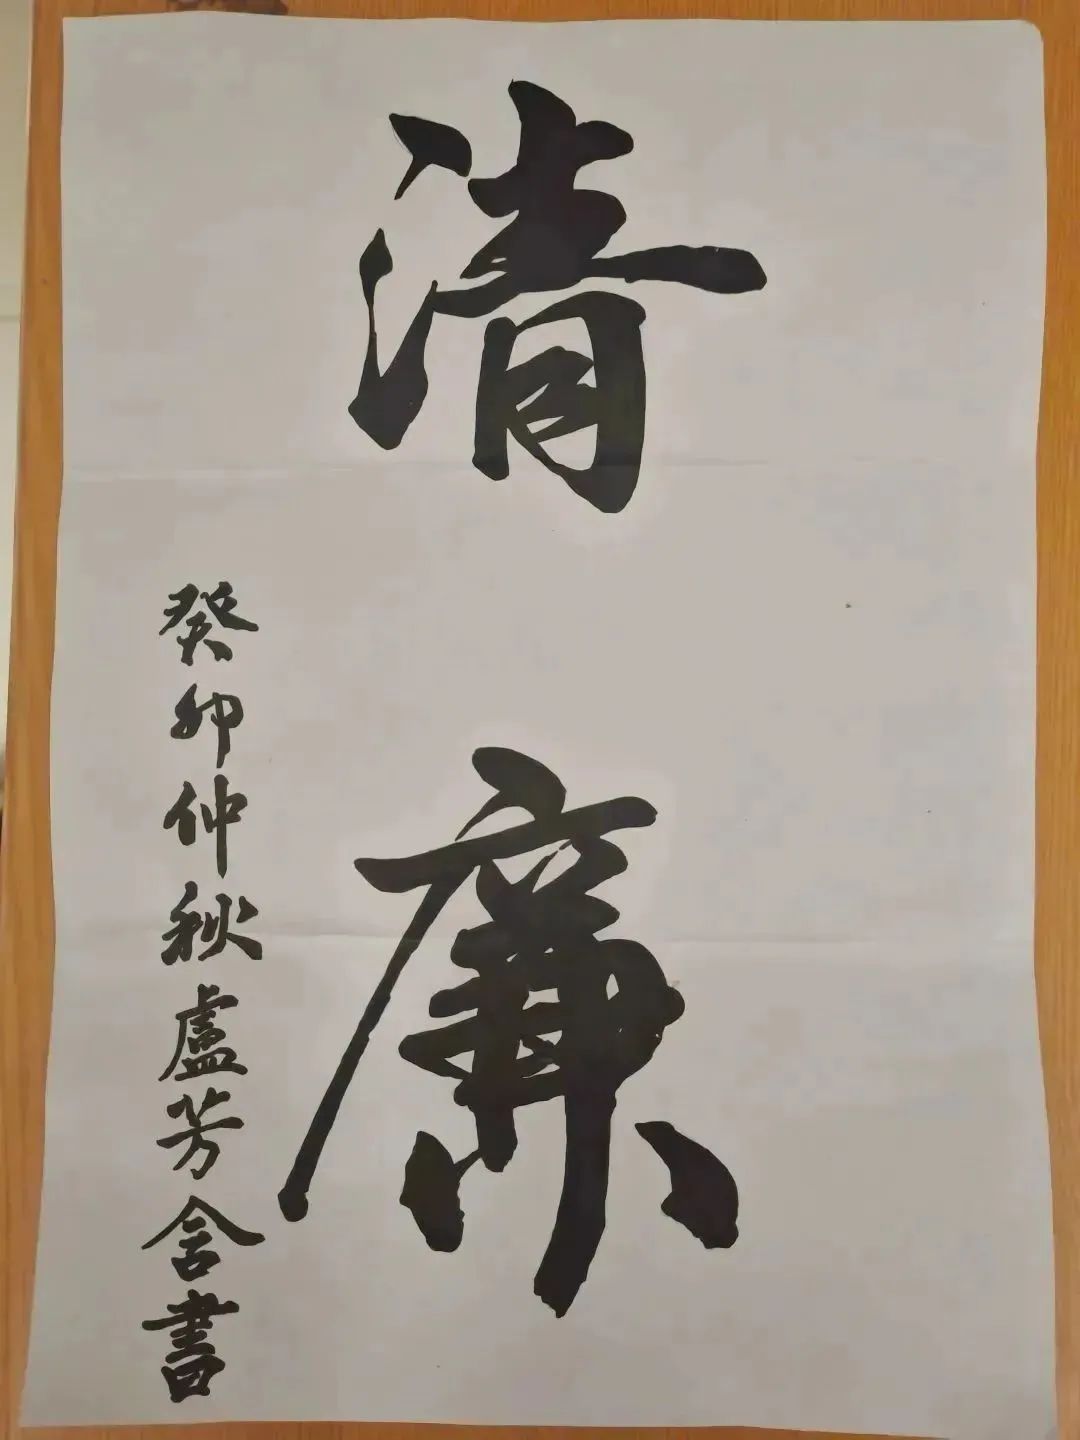 清廉
癸卯仲秋盧芳含書